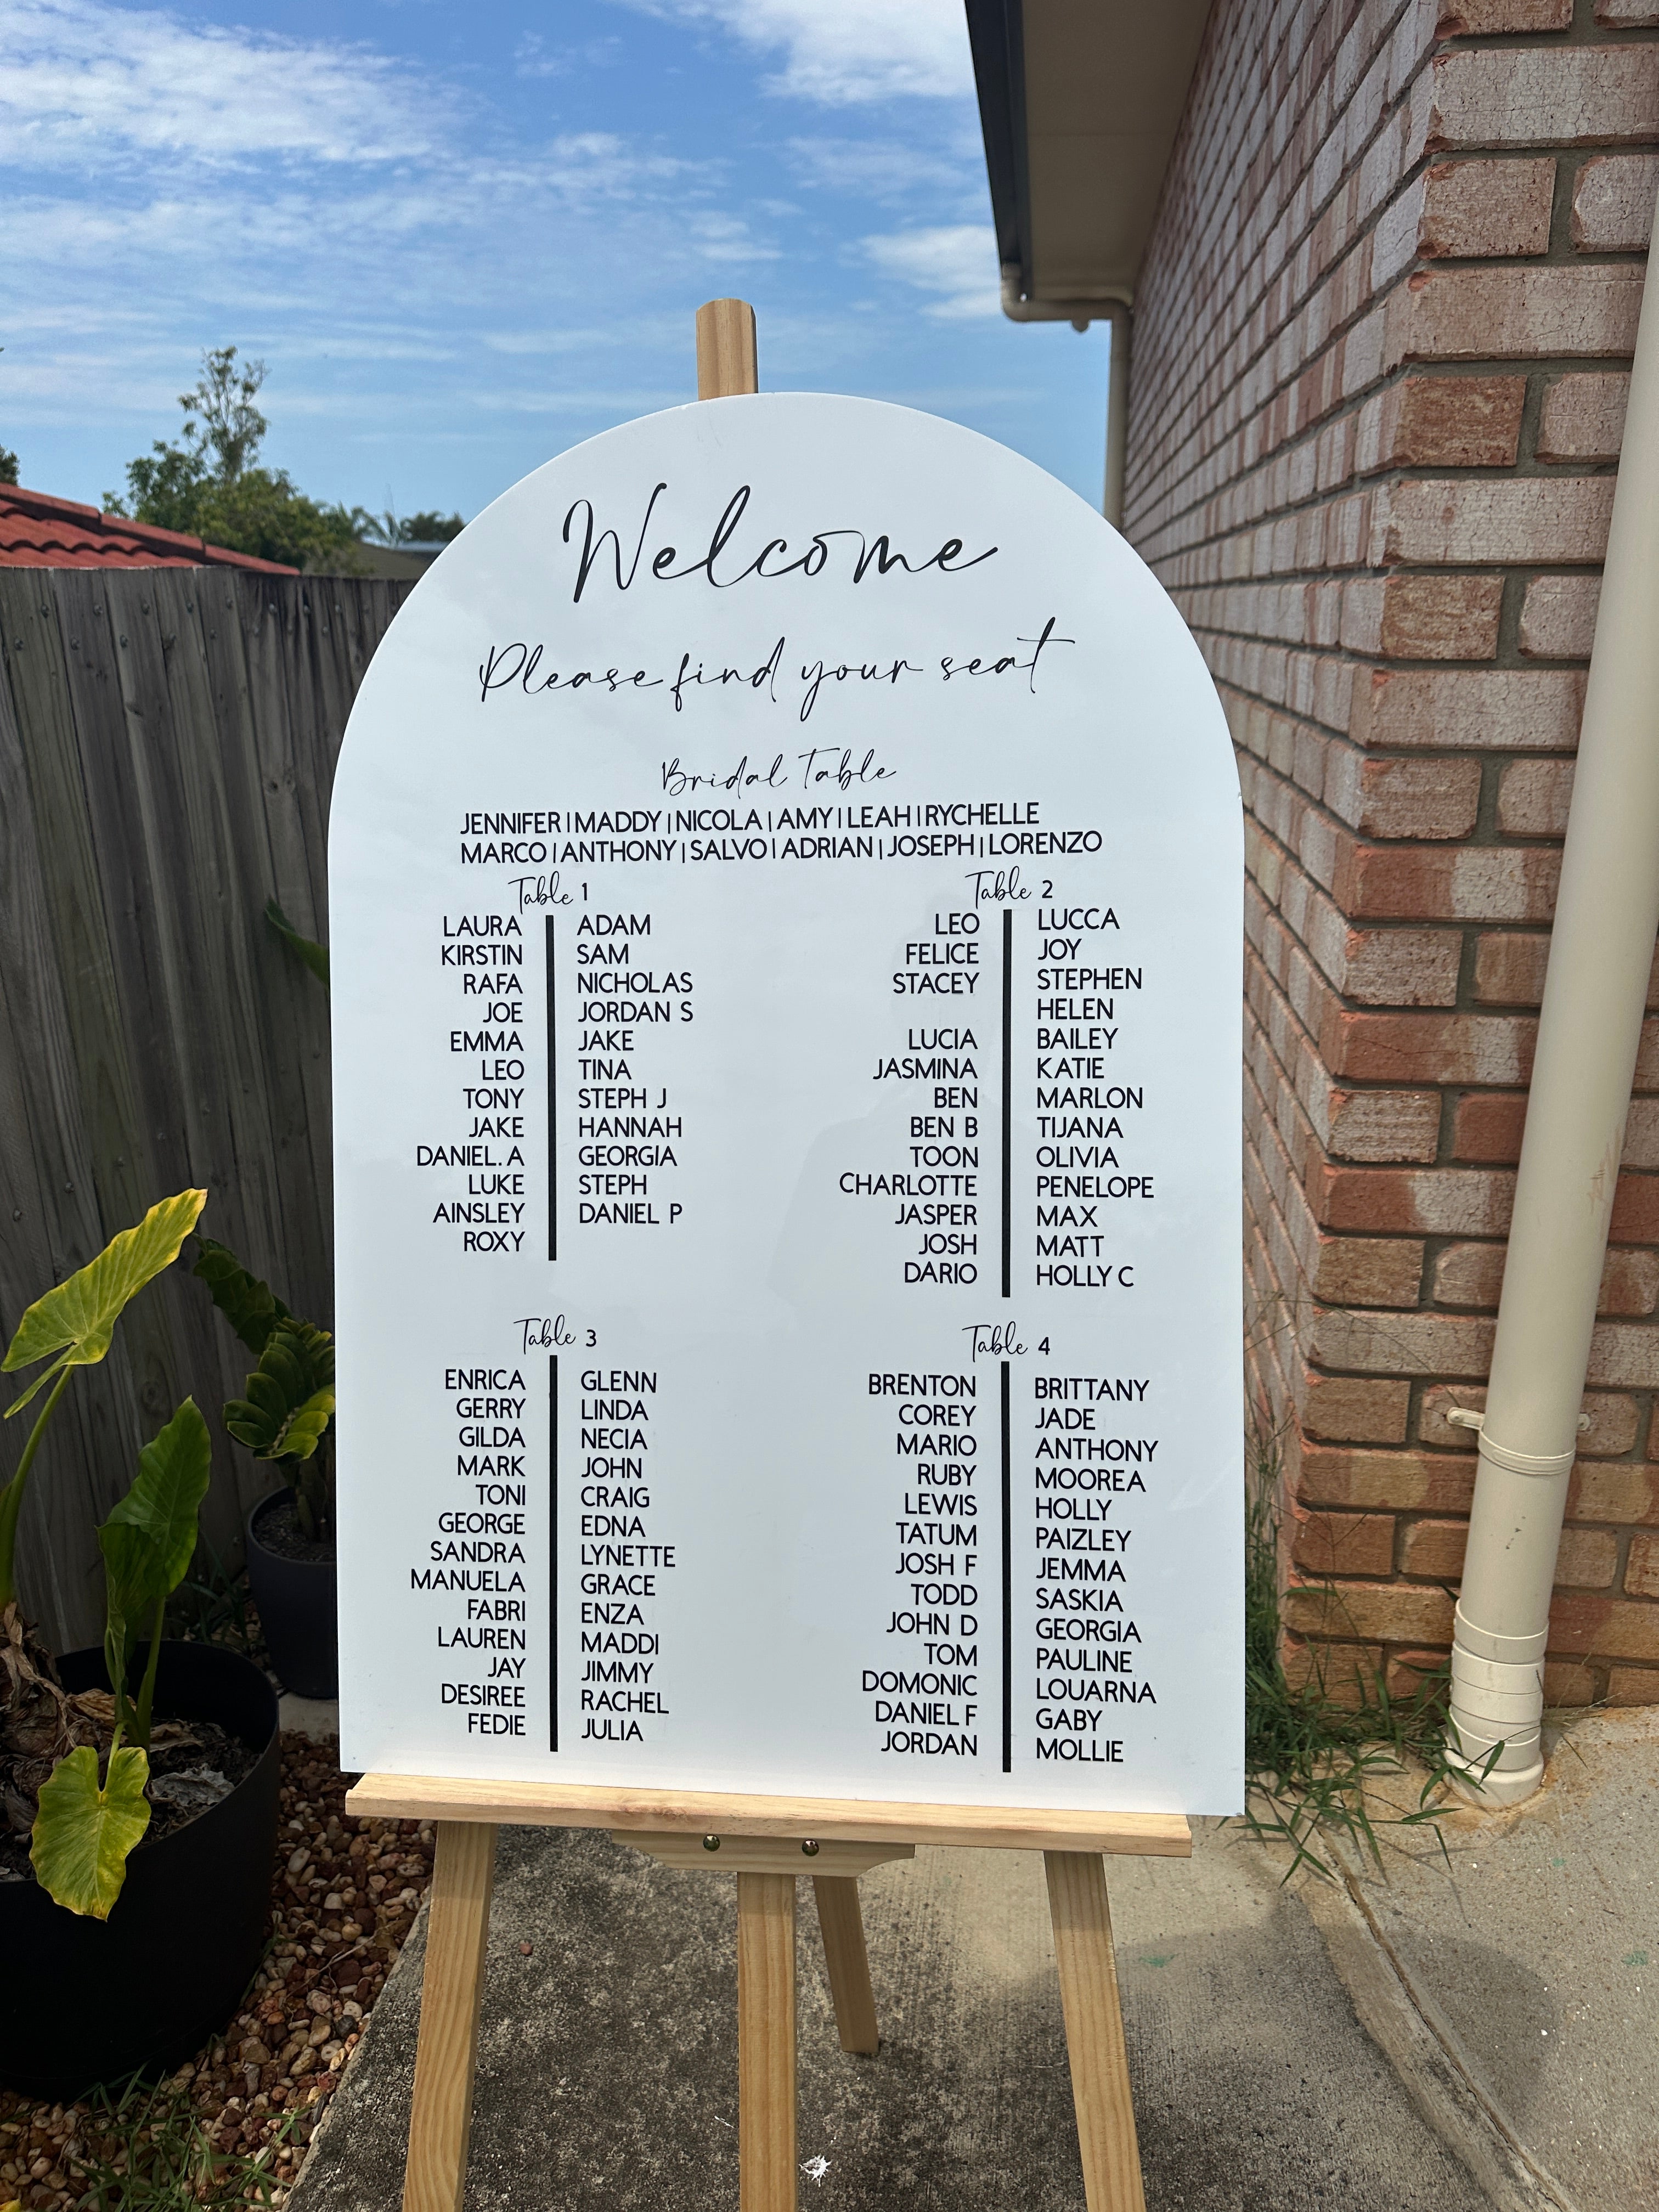 Welcome
Please find your seat
Bridal Table
JENNIFER | MADDY | NICOLA | AMY | LEAH | RYCHELLE
MARCO | ANTHONY | SALVO | ADRIAN | JOSEPH | LORENZO
Table 1
LAURA | ADAM
KIRSTIN | SAM
RAFA | NICHOLAS
JOE | JORDAN S
EMMA | JAKE
LEO | TINA
TONY | STEPH J
JAKE | HANNAH
DANIEL. A | GEORGIA
LUKE | STEPH
AINSLEY | DANIEL P
ROXY
Table 2
LEO | LUCCA
FELICE | JOY
STACEY | STEPHEN
HELEN
LUCIA | BAILEY
JASMINA | KATIE
BEN | MARLON
BEN B | TIJANA
TOON | OLIVIA
CHARLOTTE | PENELOPE
JASPER | MAX
JOSH | MATT
DARIO | HOLLY C
Table 3
ENRICA | GLENN
GERRY | LINDA
GILDA | NECIA
MARK | JOHN
TONI | CRAIG
GEORGE | EDNA
SANDRA | LYNETTE
MANUELA | GRACE
FABRI | ENZA
LAUREN | MADDI
JAY | JIMMY
DESIREE | RACHEL
FEDIE | JULIA
Table 4
BRENTON | BRITTANY
COREY | JADE
MARIO | ANTHONY
RUBY | MOOREA
LEWIS | HOLLY
TATUM | PAIZLEY
JOSH F | JEMMA
TODD | SASKIA
JOHN D | GEORGIA
TOM | PAULINE
DOMONIC | LOUARNA
DANIEL F | GABY
JORDAN | MOLLIE